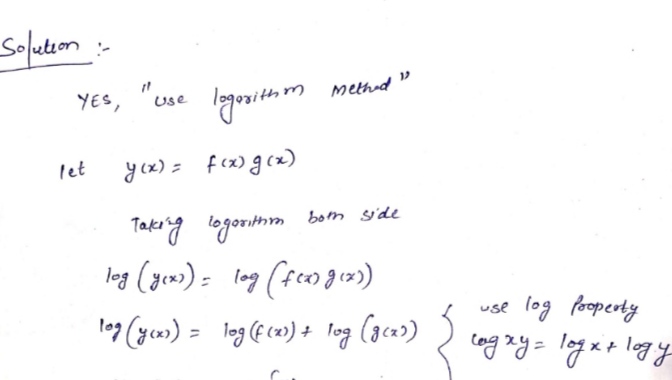 Solution :-
YES, "use logorithm Method"
let y(x) = f(x) g(x)
Taking logorithm both side
log (y(x)) = log (f(x) g(x))
log (y(x)) = log (f(x)) + log (g(x)) { use log property
log xy = log x + log y